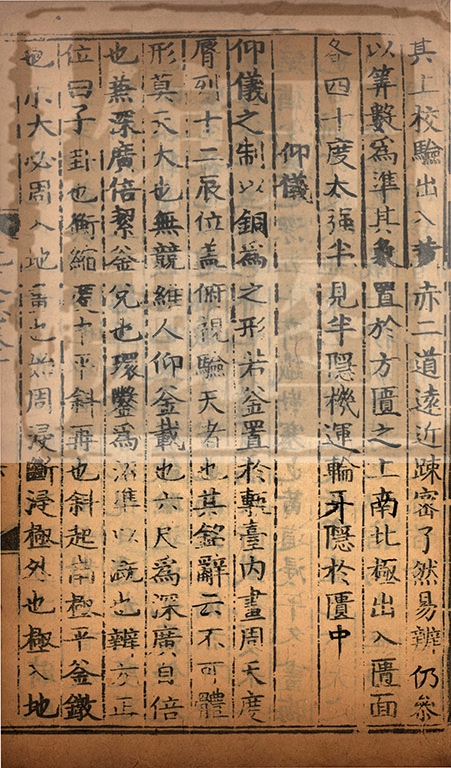 其上校驗出入黃赤二道遠近疎密了然易辨仍參
以筭數為準其象置於方匱之上南北極出入匱面
各四十度太強半見半隱機運輪牙隱於匱中
仰儀
仰儀之制以銅為之形若釜置於甎臺内畫周天度
脣列十二辰位盖俯視驗天者也其銘辭云不可體
形莫天大也無競維人仰釜載也六尺為深廣自倍
也兼深廣倍絜釜兊也環鑿為沼準以漑也辨方正
位曰子卦也衡縮度中平斜再也斜起南極平釜鐓
也小大必周入地畫也始周浸斷浸極外也極入地